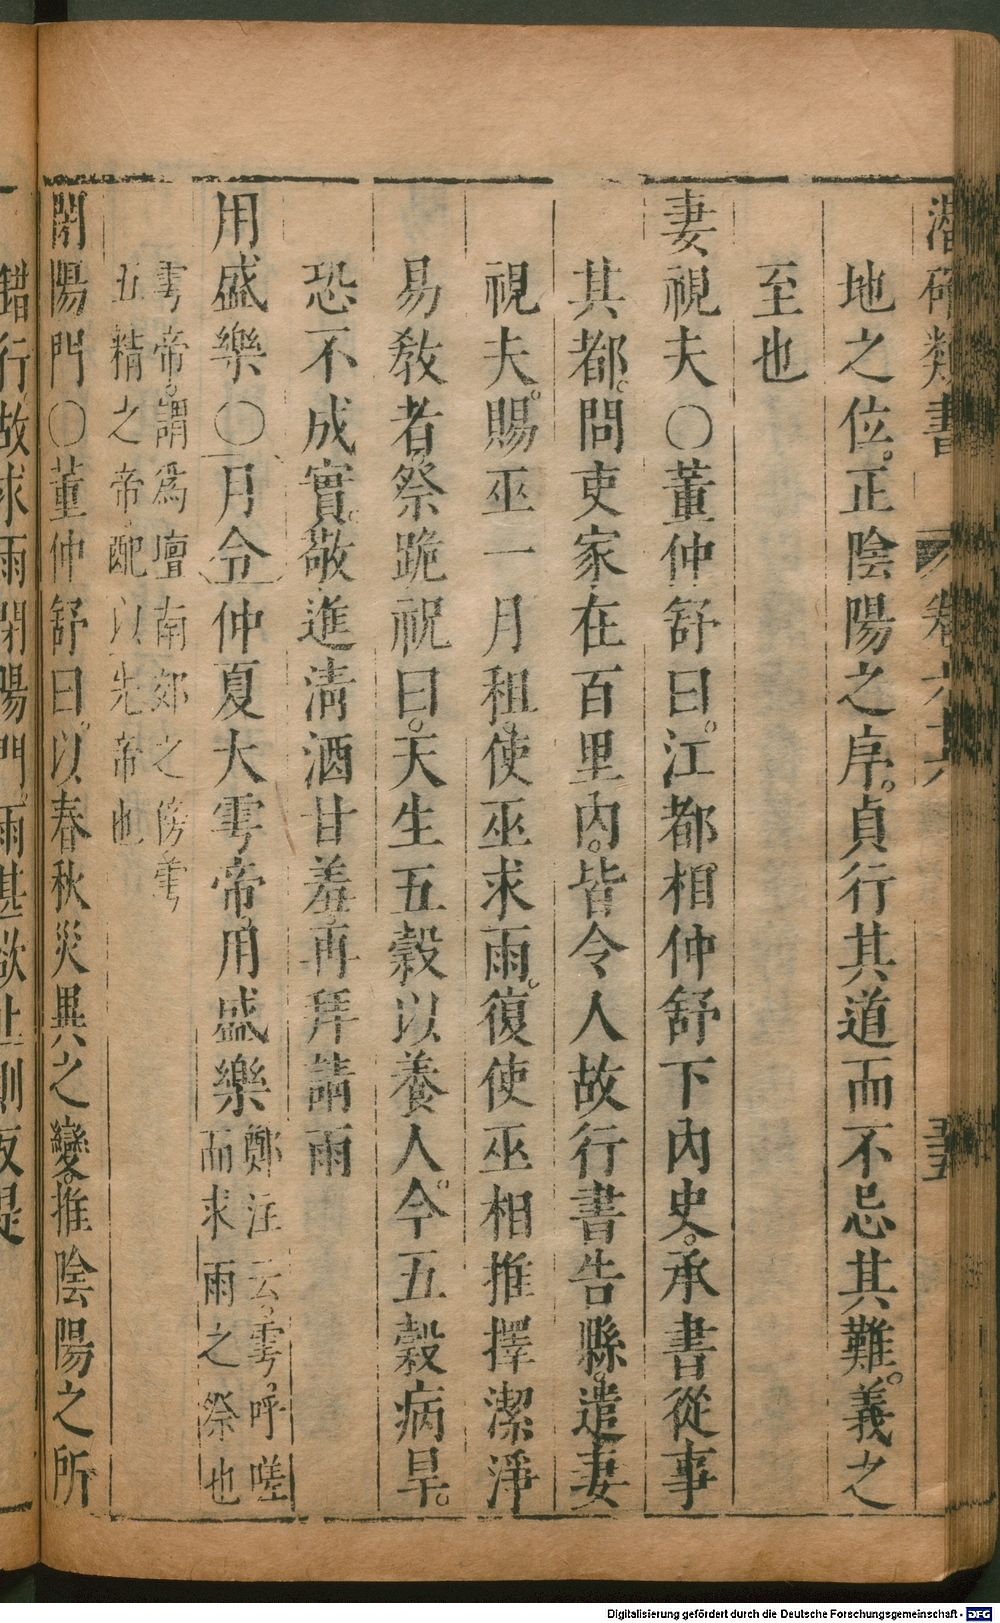 潛確類書 卷六六 三五
地之位。正陰陽之序。貞行其道而不忌其難。義之
至也
妻視夫○董仲舒曰。江都相仲舒下內史。承書從事
其都。問吏家在百里內。皆令人故行書告縣。遣妻
視夫。賜巫一月租。使巫求雨。復使巫相推擇潔淨
易敎者。祭跪祝曰。天生五穀以養人。今五穀病旱。
恐不成實。敬進清酒甘羞。再拜請雨
用盛樂○月令仲夏大雩帝。用盛樂鄭注云。雩。呼嗟
而求雨之祭也
雩帝。謂爲壇南郊之傍。雩
五精之帝。配以先帝也
閉陽門○董仲舒曰。以春秋災異之變。推陰陽之所
錯行。故求雨閉陽門。雨甚欲止則反是
Digitalisierung gefördert durch die Deutsche Forschungsgemeinschaft - DFG